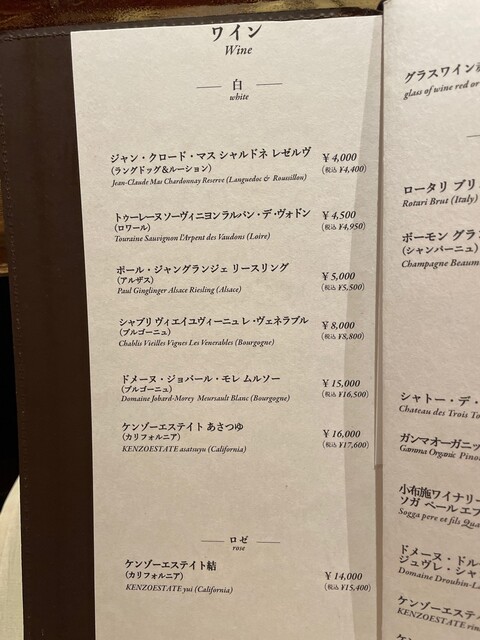 ワイン
Wine
白
white
ジャン・クロード・マス シャルドネ レゼルヴ ¥4,000
(ラングドッグ＆ルーション) (税込 ¥4,400)
Jean-Claude Mas Chardonnay Reserve (Languedoc & Roussillon)
トゥーレーヌソーヴィニヨンラルパン・デ・ヴォドン ¥4,500
(ロワール) (税込 ¥4,950)
Touraine Sauvignon l'Arpent des Vaudons (Loire)
ポール・ジャングランジェ リースリング ¥5,000
(アルザス) (税込 ¥5,500)
Paul Ginglinger Alsace Riesling (Alsace)
シャブリ ヴィエイユヴィーニュ レ・ヴェネラブル ¥8,000
(ブルゴーニュ) (税込 ¥8,800)
Chablis Vieilles Vignes Les Venerables (Bourgogne)
ドメーヌ・ジョバール・モレ ムルソー ¥15,000
(ブルゴーニュ) (税込 ¥16,500)
Domaine Jobard-Morey Meursault Blanc (Bourgogne)
ケンゾーエステイト あさつゆ ¥16,000
(カリフォルニア) (税込 ¥17,600)
KENZOESTATE asatsuyu (California)
ロゼ
rose
ケンゾーエステイト結 ¥14,000
(カリフォルニア) (税込 ¥15,400)
KENZOESTATE yui (California)
グラスワイン
glass of wine red or
ロータリ ブリ
Rotari Brut (Italy)
ボーモン グラン
(シャンパーニュ)
Champagne Beaum
シャトー・デ・
Chateau des Trois To
ガンマオーガニッ
Gamma Organic Pino
小布施ワイナリー
ソガ ペール エ フ
Sogga pere et fils Qua
ドメーヌ・ドル
ジュヴレ・シャ
Domaine Drouhin-L
ケンゾーエステ
KENZOESTATE rin